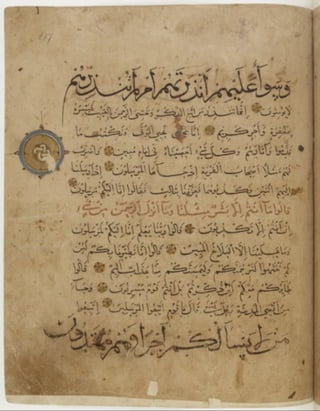 وسواء عليهم أأنذرتهم أم لم تنذرهم
لا يؤمنون إنما تنذر من اتبع الذكر وخشي الرحمن بالغيب فبشره
بمغفرة وأجر كريم إنا نحن نحيي الموتى ونكتب ما
قدموا وآثارهم وكل شيء أحصيناه في إمام مبين واضرب
لهم مثلا أصحاب القرية إذ جاءها المرسلون إذ أرسلنا
إليهم اثنين فكذبوهما فعززنا بثالث فقالوا إنا إليكم مرسلون
قالوا ما أنتم إلا بشر مثلنا وما أنزل الرحمن من شيء
إن أنتم إلا تكذبون قالوا ربنا يعلم إنا إليكم لمرسلون
وما علينا إلا البلاغ المبين قالوا إنا تطيرنا بكم لئن
لم تنتهوا لنرجمنكم وليمسنكم منا عذاب أليم قالوا
طائركم معكم أئن ذكرتم بل أنتم قوم مسرفون وجاء
من أقصى المدينة رجل يسعى قال يا قوم اتبعوا المرسلين اتبعوا
من لا يسألكم أجرا وهم مهتدون